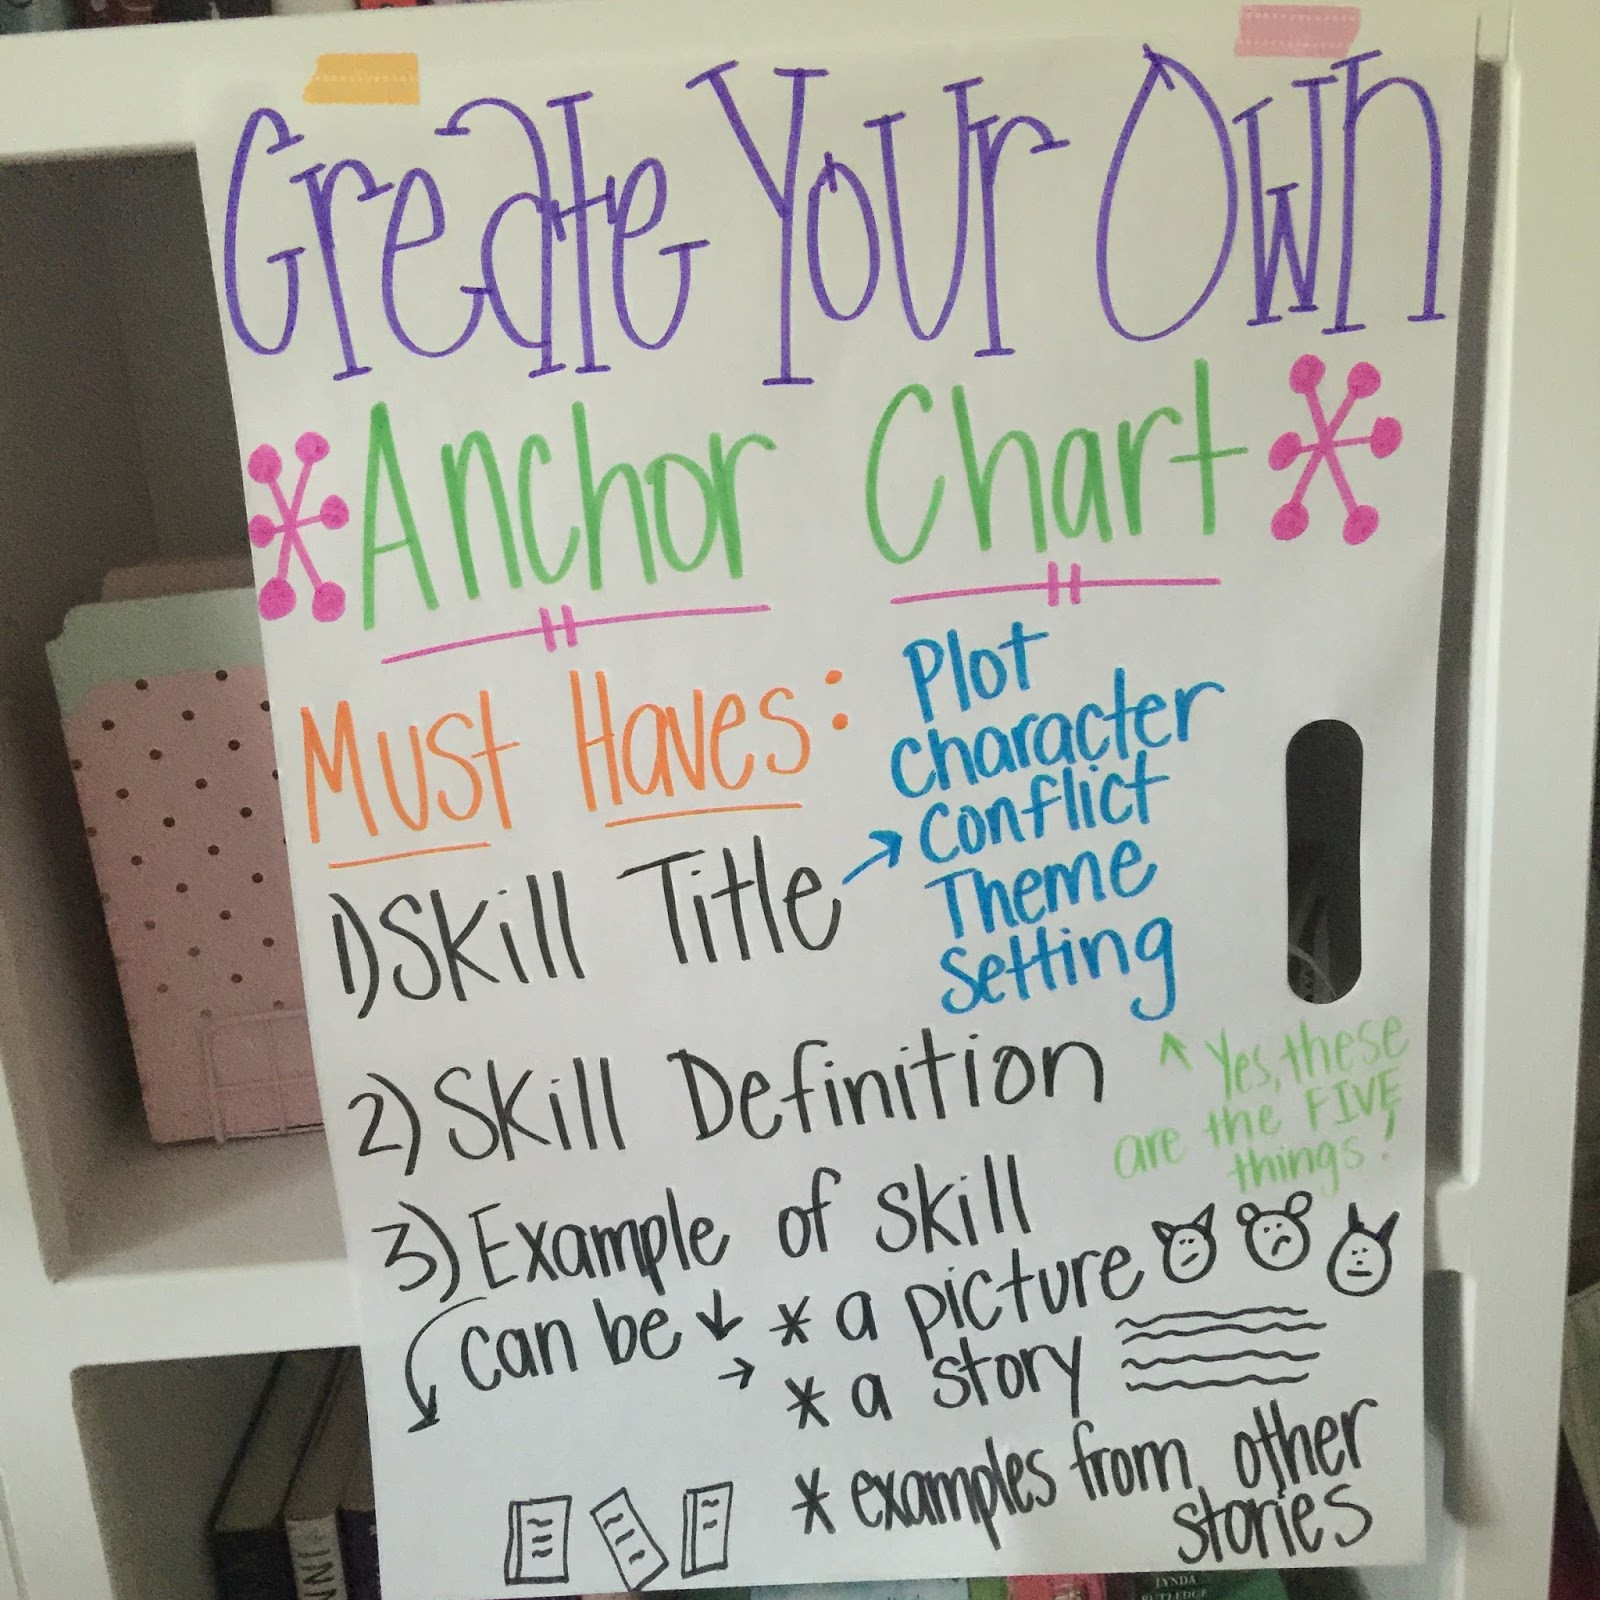 Create Your Own
Anchor Chart
Must Haves:
Plot
Character
Conflict
Theme
Setting
1) Skill Title
^ Yes, these
are the FIVE
things!
2) Skill Definition
3) Example of skill
can be
* a picture
* a story
* examples from other
stories
LYNDA
RUTLEDGE